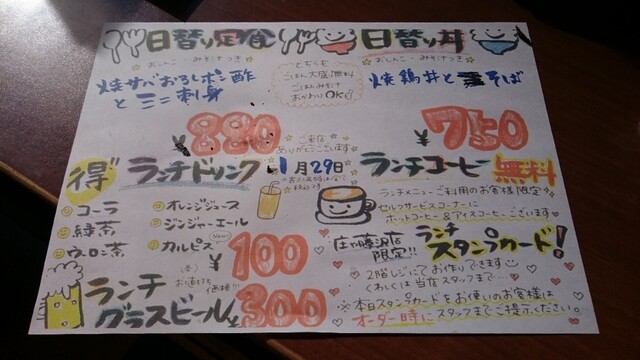 日替り定食
おしんこ・みそ汁つき
焼サバおろしポン酢
とミニ刺身
¥880
どちらも
ごはん大盛無料
ごはんみそ汁
おかわりOK
日替り丼
おしんこ・みそ汁つき
焼鶏丼と そば
¥750
ご来店
ありがとうございます
1月29日
得 ランチドリンク
コーラ
緑茶
ウーロン茶
オレンジジュース
ジンジャーエール
カルピス
New!
¥100
ランチコーヒー 無料
ランチメニューご利用のお客様限定
セルフサービスコーナーに
ホットコーヒー&アイスコーヒーございます
ランチ
グラスビール
お値打ち
価格!!
¥300
庄や藤沢店
限定!!
ランチ
スタンプカード!
2階レジにてお作りできます
くわしくは当店スタッフまで…
※本日スタンプカードをお使いのお客様は
オーダー時にスタッフまでご提示ください。